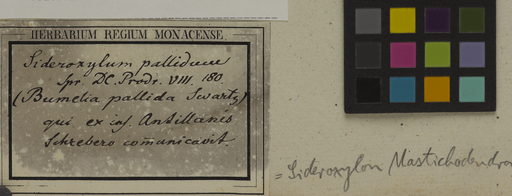 HERBARIUM REGIUM MONACENSE.
Sideroxylum pallidum
Spr. DC. Prodr. VIII. 180
(Bumelia pallida Swartz)
qui ex ins. Antillanis
Schrebero comunicavit
= Sideroxylon Mastichodendron